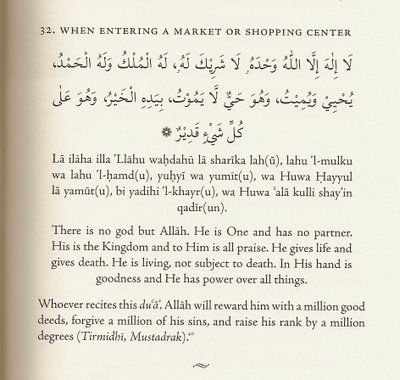 32. WHEN ENTERING A MARKET OR SHOPPING CENTER
لَا إِلٰهَ إِلَّا اللّٰهُ وَحْدَهُ لَا شَرِيْكَ لَهُ، لَهُ الْمُلْكُ وَلَهُ الْحَمْدُ،
يُحْيِيْ وَيُمِيْتُ، وَهُوَ حَيٌّ لَّا يَمُوْتُ، بِيَدِهِ الْخَيْرُ، وَهُوَ عَلٰى
كُلِّ شَيْءٍ قَدِيْرٌ ۞
Lā ilāha illa 'Llāhu waḥdahū lā sharīka lah(ū), lahu 'l-mulku
wa lahu 'l-ḥamd(u), yuḥyī wa yumīt(u), wa Huwa Ḥayyul
lā yamūt(u), bi yadihi 'l-khayr(u), wa Huwa ʿalā kulli shay'in
qadīr(un).
There is no god but Allāh. He is One and has no partner.
His is the Kingdom and to Him is all praise. He gives life and
gives death. He is living, not subject to death. In His hand is
goodness and He has power over all things.
Whoever recites this duʿā', Allāh will reward him with a million good
deeds, forgive a million of his sins, and raise his rank by a million
degrees (Tirmidhī, Mustadrak).